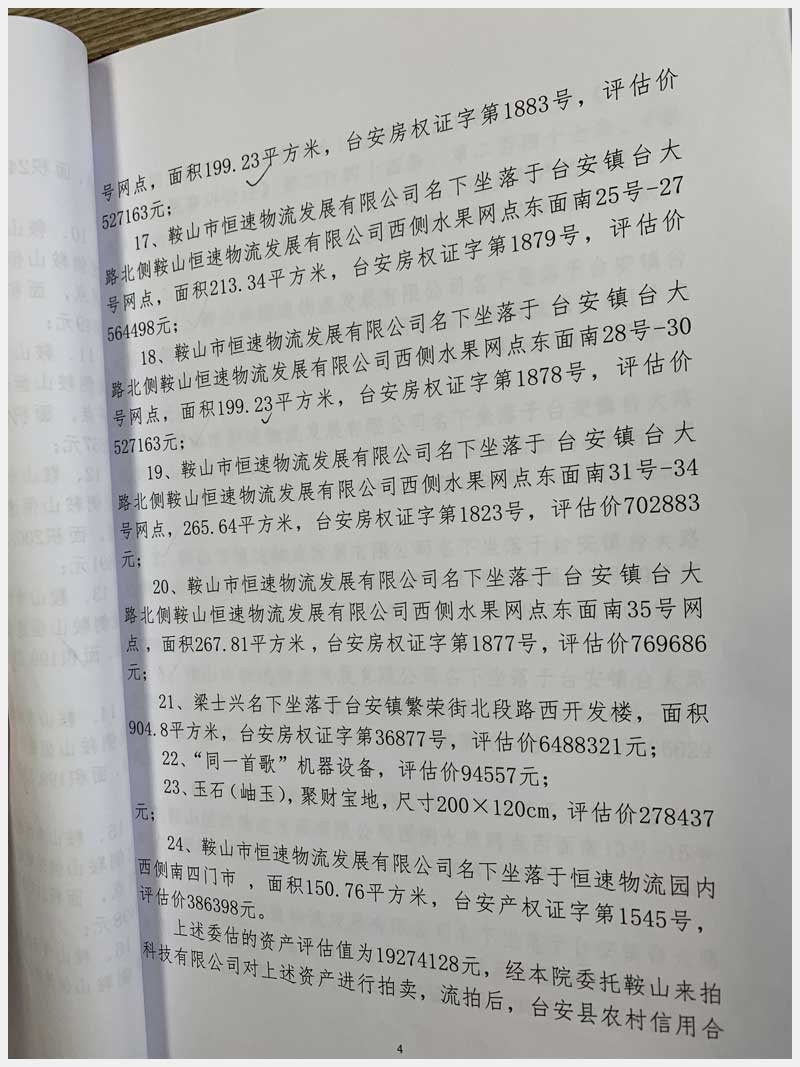 号网点，面积199.23平方米，台安房权证字第1883号，评估价
527163元；
17、鞍山市恒速物流发展有限公司名下坐落于台安镇台大
路北侧鞍山恒速物流发展有限公司西侧水果网点东面南25号-27
号网点，面积213.34平方米，台安房权证字第1879号，评估价
564498元；
18、鞍山市恒速物流发展有限公司名下坐落于台安镇台大
路北侧鞍山恒速物流发展有限公司西侧水果网点东面南28号-30
号网点，面积199.23平方米，台安房权证字第1878号，评估价
527163元；
19、鞍山市恒速物流发展有限公司名下坐落于台安镇台大
路北侧鞍山恒速物流发展有限公司西侧水果网点东面南31号-34
号网点，265.64平方米，台安房权证字第1823号，评估价702883
元；
20、鞍山市恒速物流发展有限公司名下坐落于台安镇台大
路北侧鞍山恒速物流发展有限公司西侧水果网点东面南35号网
点，面积267.81平方米，台安房权证字第1877号，评估价769686
元；
21、梁士兴名下坐落于台安镇繁荣街北段路西开发楼，面积
904.8平方米，台安房权证字第36877号，评估价6488321元；
22、“同一首歌”机器设备，评估价94557元；
23、玉石(岫玉)，聚财宝地，尺寸200×120cm，评估价278437
元；
24、鞍山市恒速物流发展有限公司名下坐落于恒速物流园内
西侧南四门市，面积150.76平方米，台安产权证字第1545号，
评估价386398元。
上述委估的资产评估值为19274128元，经本院委托鞍山来拍
科技有限公司对上述资产进行拍卖，流拍后，台安县农村信用合
4